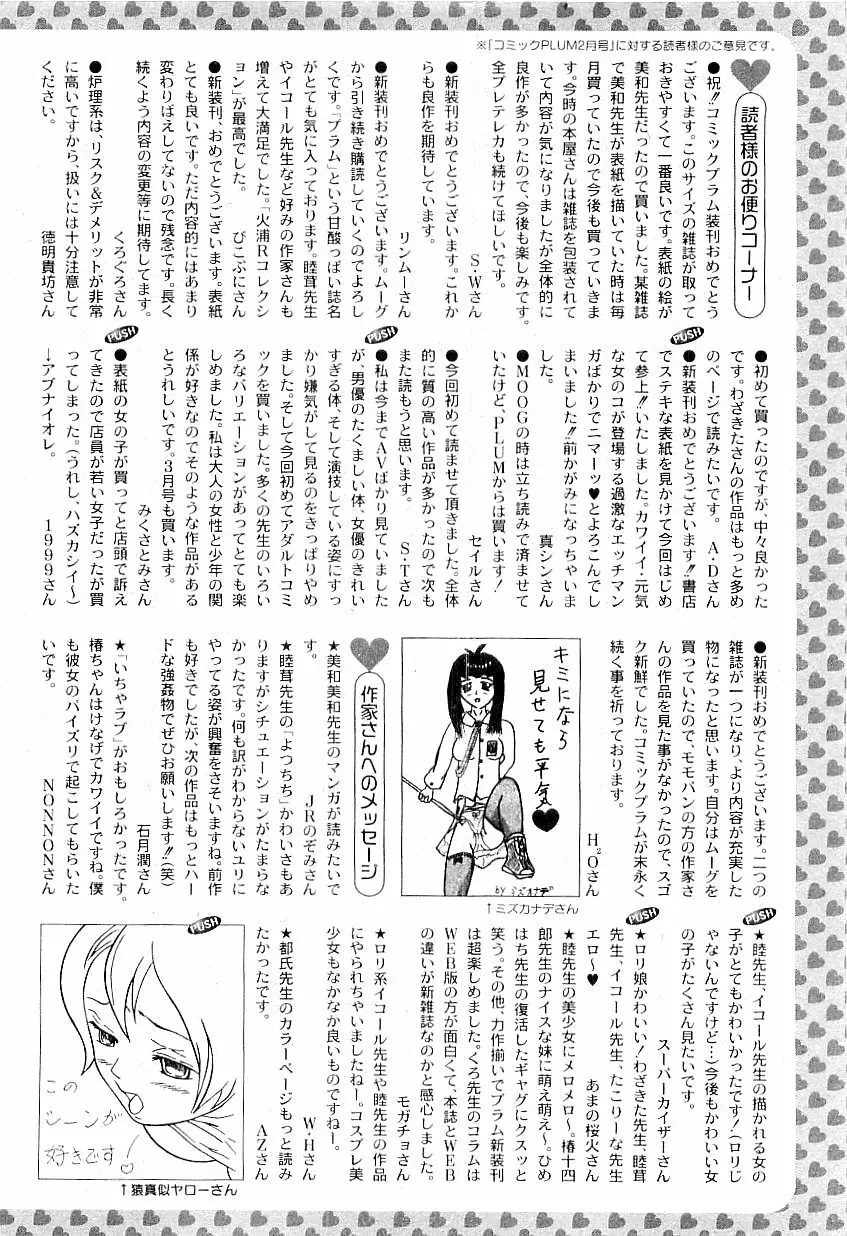 ※「コミックPLUM2月号」に対する読者様のご意見です。
読者様のお便りコーナー
●祝!!コミックプラム装刊おめでとう
ございます。このサイズの雑誌が取って
おきやすくて一番良いです。表紙の絵が
美和先生だったので買いました。某雑誌
で美和先生が表紙を描いていた時は毎
月買っていたので今後も買っていきま
す。今時の本屋さんは雑誌を包装されて
いて内容が気になりましたが全体的に
良作が多かったので、今後も楽しみです。
全プレテレカも続けてほしいです。
S・Wさん
●新装刊おめでとうございます。これか
らも良作を期待しています。
リンムーさん
●新装刊おめでとうございます。ムーグ
から引き続き購読していくのでよろし
くです。「プラム」という甘酸っぱい誌名
がとても気に入っております。睦茸先生
やイコール先生など好みの作家さんも
増えて大満足でした。「火浦Rコレクシ
ョン」が最高でした。
ぴこぷにさん
●新装刊、おめでとうございます。表紙
とても良いです。ただ内容的にはあまり
変わりばえしてないので残念です。長く
続くよう内容の変更等に期待してます。
くろぐろさん
●炉理系は、リスク&デメリットが非常
に高いですから、扱いには十分注意して
ください。
徳明貴坊さん
●初めて買ったのですが、中々良かった
です。わざきたさんの作品はもっと多め
のページで読みたいです。
A・Dさん
PUSH
●新装刊おめでとうございます!!書店
でステキな表紙を見かけて今回はじめ
て参上!!いたしました。カワイイ・元気
な女のコが登場する過激なエッチマン
ガばかりでニマーッ♥とよろこんでし
まいました!!前かがみになっちゃいま
した。
真シンさん
●MOOGの時は立ち読みで済ませて
いたけど、PLUMからは買います!
セイルさん
●今回初めて読ませて頂きました。全体
的に質の高い作品が多かったので次も
また読もうと思います。
S・Tさん
PUSH
●私は今までAVばかり見ていました
が、男優のたくましい体、女優のきれい
すぎる体、そして演技している姿にすっ
かり嫌気がして見るのをきっぱりやめ
ました。そして今回初めてアダルトコミ
ックを買いました。多くの先生のいろい
ろなバリエーションがあってとても楽
しめました。私は大人の女性と少年の関
係が好きなのでそのような作品がある
とうれしいです。3月号も買います。
みくさとみさん
PUSH
●表紙の女の子が買ってと店頭で訴え
てきたので店員が若い女子だったが買
ってしまった。(うれし、ハズカシイ〜)
→アブナイオレ。
1999さん
●新装刊おめでとうございます。二つの
雑誌が一つになり、より内容が充実した
物になったと思います。自分はムーグを
買っていたので、モモバンの方の作家さ
んの作品を見た事がなかったので、スゴ
ク新鮮でした。コミックプラムが末永く
続く事を祈っております。
H2Oさん
キミになら
見せても平気♥
BYミズカナデ
↑ミズカナデさん
作家さんへのメッセージ
★美和美和先生のマンガが読みたいで
す。
JRのぞみさん
★睦茸先生の「よつちち」かわいさもあ
りますがシチュエーションがたまらな
かったです。何も訳がわからないユリに
やってる姿が興奮をさそいますね。前作
も好きでしたが、次の作品はもっとハー
ドな強姦物でぜひお願いします!!(笑)
石月潤さん
★「いちゃラブ」がおもしろかったです。
椿ちゃんはけなげでカワイイですね。僕
も彼女のパイズリで起こしてもらいた
いです。
NONNONさん
PUSH
★睦先生、イコール先生の描かれる女の
子がとてもかわいかったです!(ロリじ
ゃないんですけど…)今後もかわいい女
の子がたくさん見たいです。
スーパーカイザーさん
PUSH
★ロリ娘かわいい!わざきた先生、睦茸
先生、イコール先生、たこりーな先生
エロ〜♥
あまの桜火さん
★睦先生の美少女にメロメロ〜。椿十四
郎先生のナイスな妹に萌え萌え〜。ひめ
はち先生の復活したギャグにクスッと
笑う。その他、力作揃いでプラム新装刊
は超楽しめました。くろ先生のコラムは
WEB版の方が面白くて、本誌とWEB
の違いが新雑誌なのかと感心しました。
モガチョさん
★ロリ系イコール先生や睦先生の作品
にやられちゃいましたねー。コスプレ美
少女もなかなか良いものですねー。
W・Hさん
★都氏先生のカラーページもっと読み
たかったです。
AZさん
PUSH
この
シーンが
好きです!
↑猿真似ヤローさん